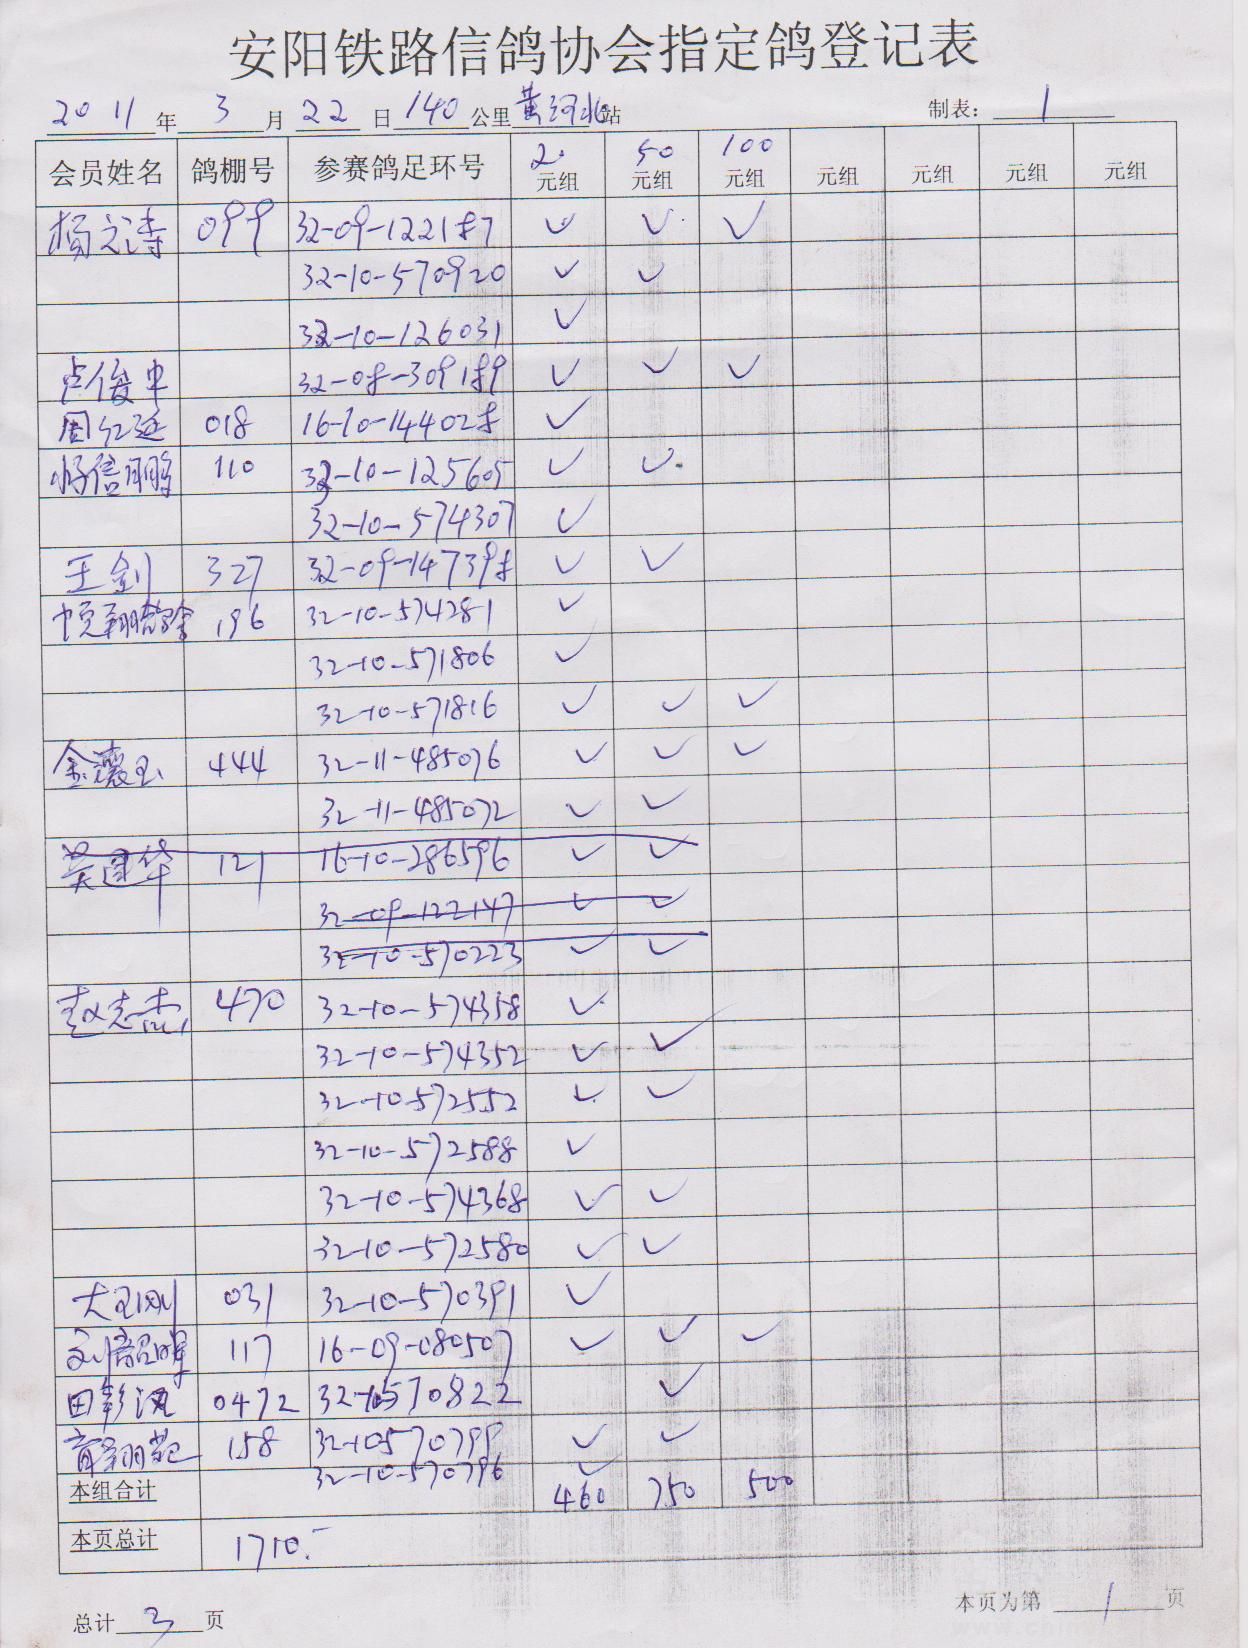 安阳铁路信鸽协会指定鸽登记表
2011年 3月 22日 140公里 黄河北站 制表：1
会员姓名 鸽棚号 参赛鸽足环号 20元组 50元组 100元组 元组 元组 元组 元组
杨文涛 099 32-09-122187 ✓ ✓ ✓
32-10-570920 ✓ ✓
32-10-126031 ✓
卢俊中 32-08-309189 ✓ ✓ ✓
周红延 018 16-10-144028 ✓
信鹏 110 32-10-125605 ✓ ✓
32-10-574307 ✓
王剑 327 32-09-147398 ✓ ✓
196 32-10-574281 ✓
32-10-571806 ✓
32-10-571816 ✓ ✓ ✓
金玉 444 32-11-485076 ✓ ✓ ✓
32-11-485072 ✓ ✓
吴建华 121 16-10-286596 ✓ ✓
32-09-122147 ✓ ✓
32-10-570223 ✓ ✓
赵志杰 470 32-10-574358 ✓
32-10-574352 ✓ ✓
32-10-572552 ✓ ✓
32-10-572588 ✓
32-10-574368 ✓ ✓
32-10-572580 ✓ ✓
大王刚 031 32-10-570391 ✓
刘韶晖 117 16-09-080507 ✓ ✓ ✓
田彭汉 0472 32-10570822 ✓
翔苑 158 32-10570799 ✓ ✓
32-10-570796 ✓
本组合计 460 750 500
本页总计 1710.-
总计 3 页 本页为第 1 页